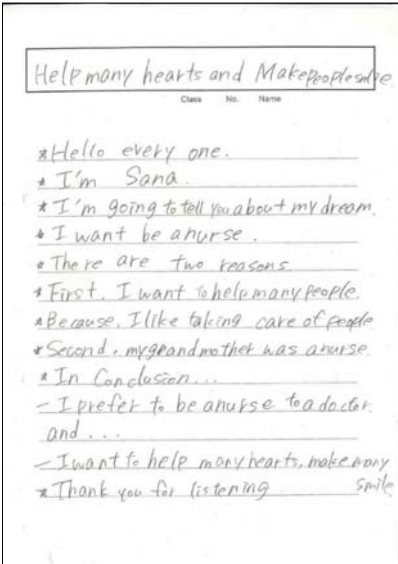 Help many hearts and Make people smile
Class No. Name
* Hello every one.
* I'm Sana.
* I'm going to tell you about my dream.
* I want be a nurse.
* There are two reasons.
* First, I want to help many people.
* Because, I like taking care of people
* Second, my grandmother was a nurse.
* In Conclusion...
- I prefer to be a nurse to a doctor.
and ...
- I want to help many hearts, make many
smile
* Thank you for listening